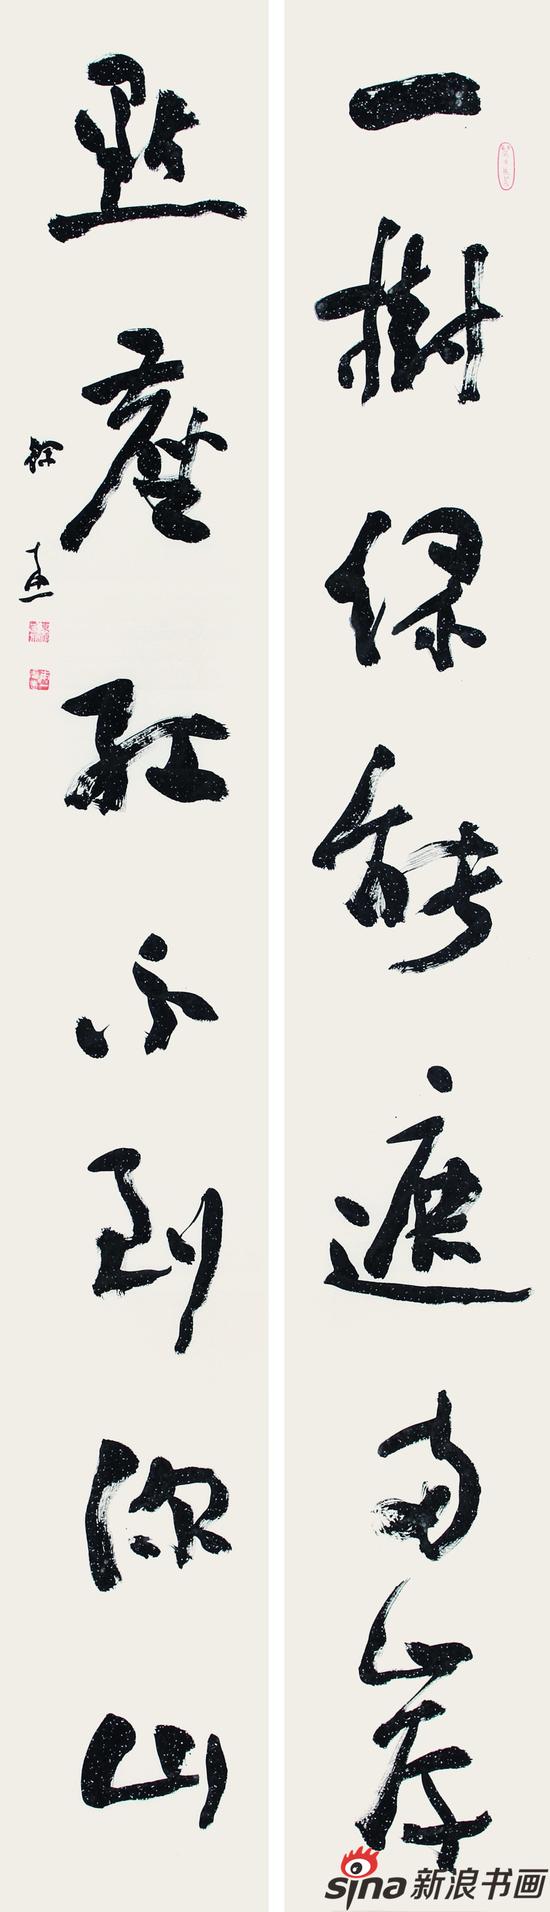 一樹綠能遮兩岸
點塵紅不到深山
sina新浪书画